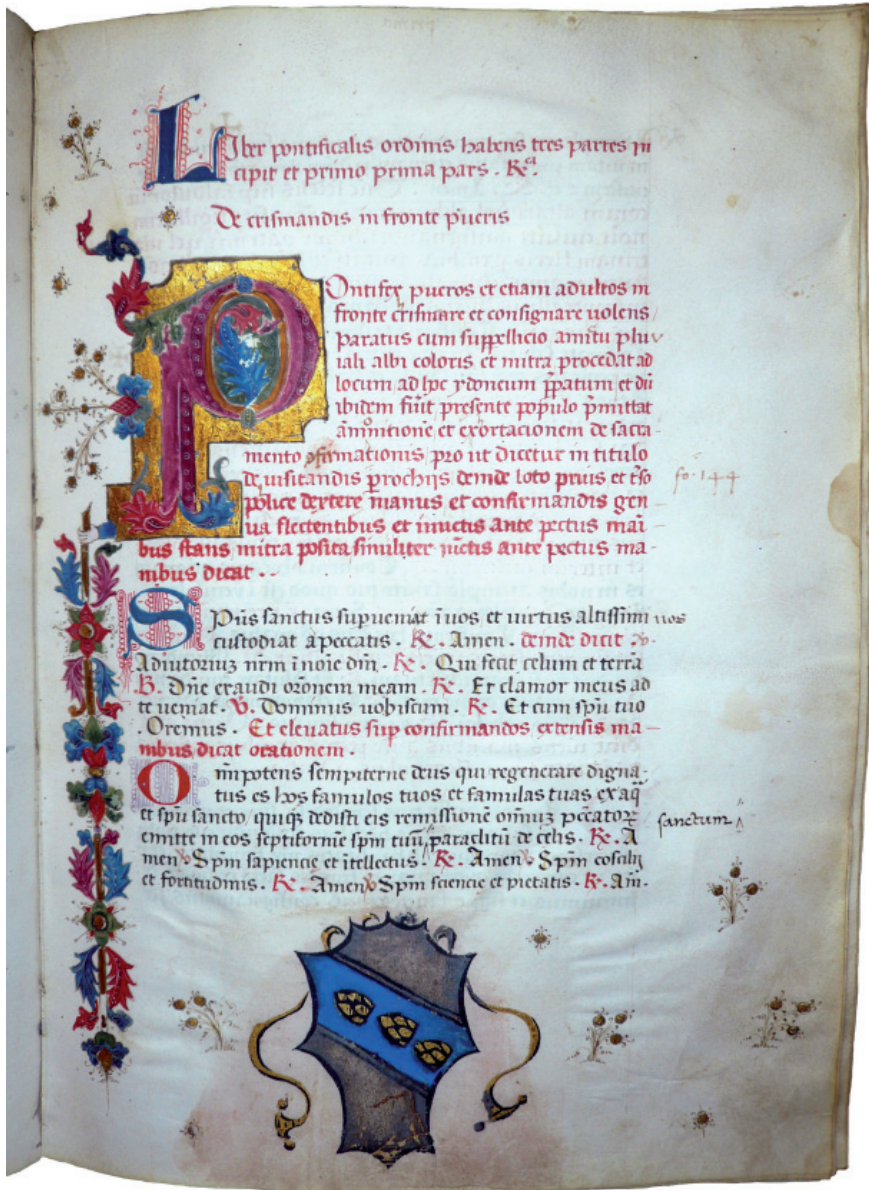 Liber pontificalis ordinis habens tres partes in
cipit et primo prima pars . Rᵃ.
De crismandis in fronte pueris
Pontifex pueros et etiam adultos in
fronte crismare et consignare uolens
paratus cum suppellicio amictu pluv
iali albi coloris et mitra procedat ad
locum ad hoc ydoneum p̄patum et dū
ibidem fūit presente populo p̄mittat
āmonicionē et exortacionem de sacra
mento ꝯfirmationis pro ut dicetur in titulo
de uisitandis ꝑrochijs deinde loto prius et t̄so
fo. 144
police dextere manus et confirmandis gen
ua flectentibus et iniuctis ante pectus maī
bus stans mitra posita similiter iūctis ante pectus ma-
nibus dicat ..
Sp̄us sanctus supueniat ī uos et uirtus altissimi uos
custodiat a peccatis . R̷. Amen . deinde dicit v̷.
Adiutoriuꝫ nr̄m ī noīe dn̄i . R̷. Qui fecit celum et terrā
V̷. Dn̄e exaudi or̄onem meam . R̷. Et clamor meus ad
te ueniat . v̷. Dominus uobiscum . R̷. Et cum sp̄u tuo
. Oremus . Et eleuatus sup confirmandos extensis ma-
nibus dicat orationem .
Om̄ipotens sempiterne deus qui regenerare digna-
tus es hos famulos tuos et famulas tuas ex aq̄
et sp̄u sancto / quiqꝫ dedisti eis remissionē omniuꝫ pc̄catoꝝ
sanctum
emitte in eos septiformē sp̄m tuū paraclitū de celis . R̷. A
men v̷ Sp̄m sapiencie et ītellectus . R̷. Amen v̷ Sp̄m cosilij
et fortitudinis . R̷. Amen v̷ Sp̄m sciencie et pietatis . R̷. Am̄.